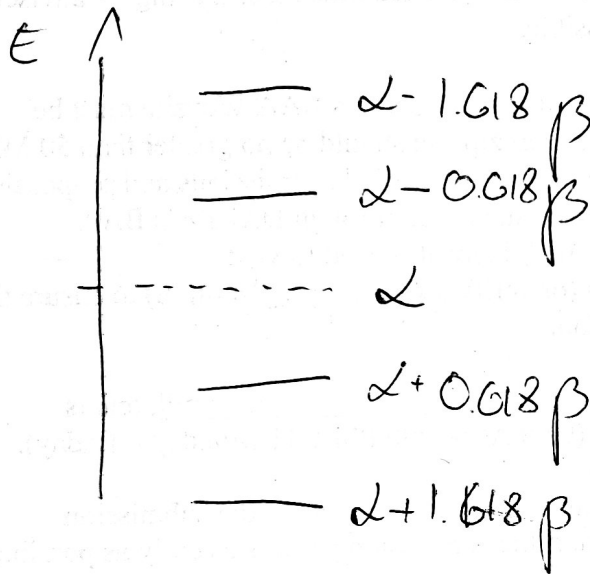 E
α - 1.618 β
α - 0.618 β
α
α + 0.618 β
α + 1.618 β